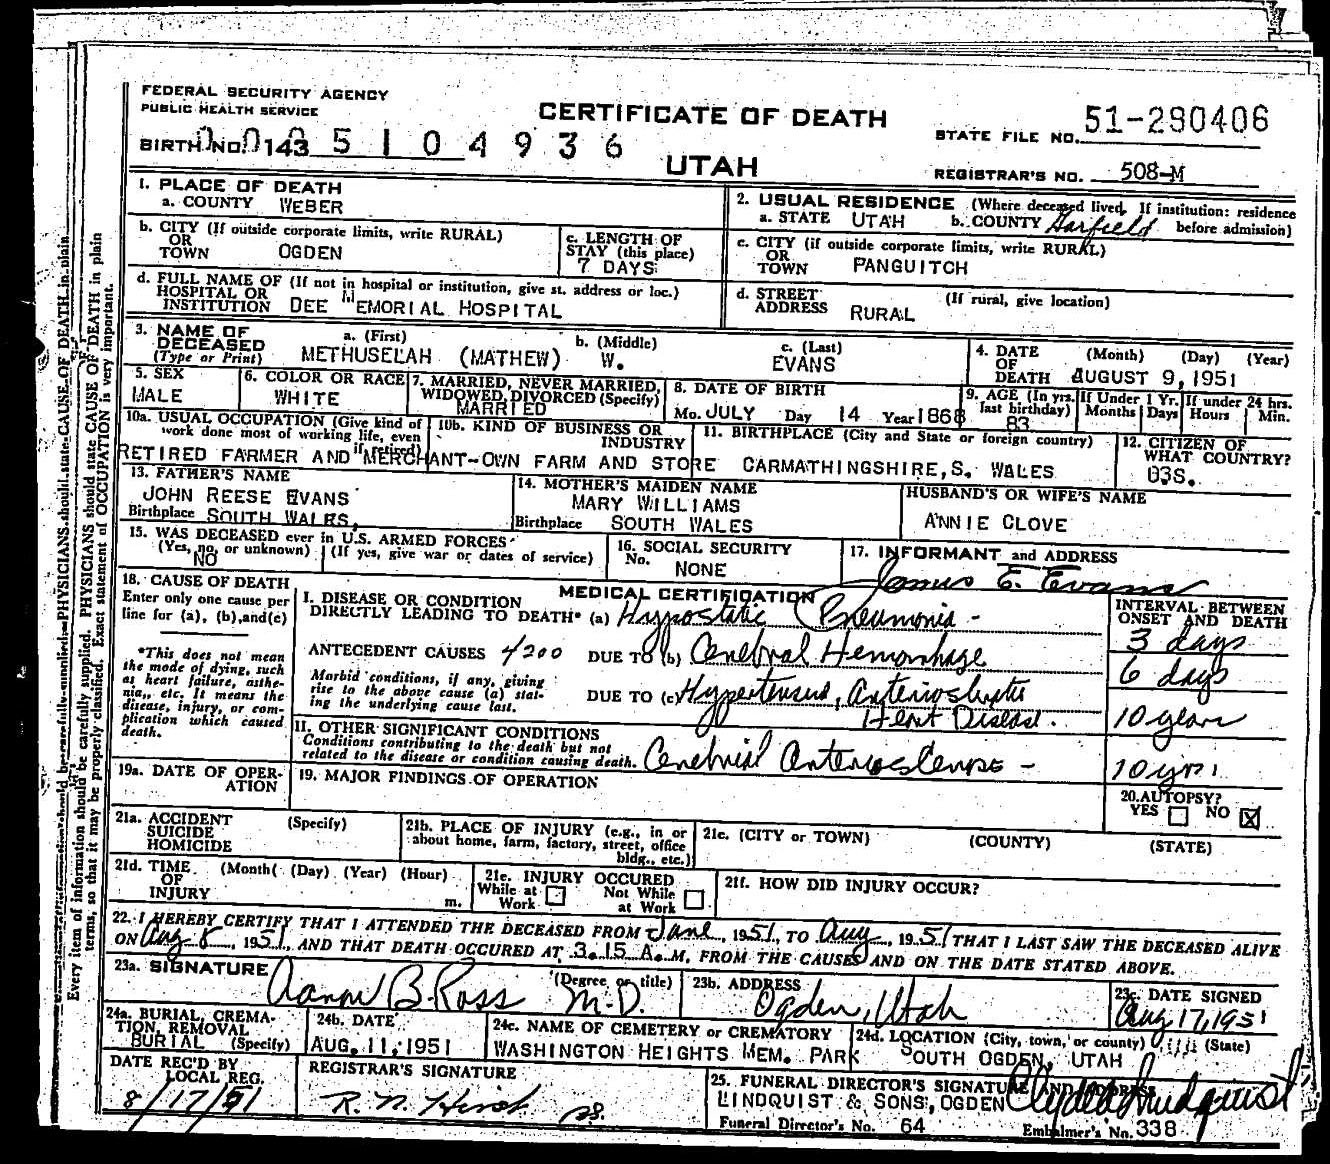 FEDERAL SECURITY AGENCY
PUBLIC HEALTH SERVICE
CERTIFICATE OF DEATH
UTAH
STATE FILE NO. 51-290406
BIRTH NO. 143 5 1 0 4 9 3 6
REGISTRAR'S NO. 508-M
1. PLACE OF DEATH
a. COUNTY WEBER
2. USUAL RESIDENCE (Where deceased lived. If institution: residence before admission)
a. STATE UTAH b. COUNTY Garfield
b. CITY (If outside corporate limits, write RURAL)
OR TOWN OGDEN
c. LENGTH OF STAY (this place)
7 DAYS
c. CITY (if outside corporate limits, write RURAL)
OR TOWN PANGUITCH
d. FULL NAME OF (If not in hospital or institution, give st. address or loc.)
HOSPITAL OR INSTITUTION DEE MEMORIAL HOSPITAL
d. STREET ADDRESS (If rural, give location)
RURAL
3. NAME OF DECEASED (Type or Print)
a. (First) b. (Middle) c. (Last)
METHUSELAH (MATHEW) W. EVANS
4. DATE OF DEATH (Month) (Day) (Year)
AUGUST 9, 1951
5. SEX
MALE
6. COLOR OR RACE
WHITE
7. MARRIED, NEVER MARRIED, WIDOWED, DIVORCED (Specify)
MARRIED
8. DATE OF BIRTH
Mo. JULY Day 14 Year 1868
9. AGE (In yrs. last birthday)
83
If Under 1 Yr. Months Days
If under 24 hrs. Hours Min.
10a. USUAL OCCUPATION (Give kind of work done most of working life, even if retired)
10b. KIND OF BUSINESS OR INDUSTRY
RETIRED FARMER AND MERCHANT-OWN FARM AND STORE
11. BIRTHPLACE (City and State or foreign country)
CARMATHINGSHIRE, S. WALES
12. CITIZEN OF WHAT COUNTRY?
13. FATHER'S NAME
JOHN REESE EVANS
Birthplace SOUTH WALES,
14. MOTHER'S MAIDEN NAME
MARY WILLIAMS
Birthplace SOUTH WALES
HUSBAND'S OR WIFE'S NAME
ANNIE CLOVE
15. WAS DECEASED ever in U.S. ARMED FORCES
(Yes, no, or unknown) (If yes, give war or dates of service)
NO
16. SOCIAL SECURITY No. NONE
17. INFORMANT and ADDRESS
James E. Evans
18. CAUSE OF DEATH
Enter only one cause per line for (a), (b), and (c)
*This does not mean the mode of dying, such as heart failure, asthenia, etc. It means the disease, injury, or complication which caused death.
MEDICAL CERTIFICATION
INTERVAL BETWEEN ONSET AND DEATH
I. DISEASE OR CONDITION DIRECTLY LEADING TO DEATH* (a) Hypostatic Pneumonia - 3 days
ANTECEDENT CAUSES 4200 DUE TO (b) Cerebral Hemorrhage 6 days
Morbid conditions, if any, giving rise to the above cause (a) stating the underlying cause last.
DUE TO (c) Hypertensive, Arteriosclerotic Heart Disease. 10 years
II. OTHER SIGNIFICANT CONDITIONS
Conditions contributing to the death but not related to the disease or condition causing death. Cerebral Arteriosclerosis - 10 yrs.
19a. DATE OF OPERATION
19. MAJOR FINDINGS OF OPERATION
20. AUTOPSY?
YES NO X
21a. ACCIDENT SUICIDE HOMICIDE (Specify)
21b. PLACE OF INJURY (e.g., in or about home, farm, factory, street, office bldg., etc.)
21c. (CITY or TOWN) (COUNTY) (STATE)
21d. TIME OF INJURY (Month) (Day) (Year) (Hour) m.
21e. INJURY OCCURED
While at Work Not While at Work
21f. HOW DID INJURY OCCUR?
22. I HEREBY CERTIFY THAT I ATTENDED THE DECEASED FROM June, 1951, TO Aug, 1951 THAT I LAST SAW THE DECEASED ALIVE
ON Aug 8, 1951, AND THAT DEATH OCCURED AT 3.15 A.M. FROM THE CAUSES AND ON THE DATE STATED ABOVE.
23a. SIGNATURE (Degree or title)
Aaron B. Ross M.D.
23b. ADDRESS
Ogden, Utah
23c. DATE SIGNED
Aug 17, 1951
24a. BURIAL, CREMATION, REMOVAL (Specify)
BURIAL
24b. DATE
AUG. 11, 1951
24c. NAME OF CEMETERY or CREMATORY
WASHINGTON HEIGHTS MEM. PARK
24d. LOCATION (City, town, or county) (State)
SOUTH OGDEN, UTAH
DATE REC'D BY LOCAL REG.
8/17/51
REGISTRAR'S SIGNATURE
25. FUNERAL DIRECTOR'S SIGNATURE AND ADDRESS
LINDQUIST & SONS, OGDEN Clyde Lindquist
Funeral Director's No. 64 Embalmer's No. 338
Every item of information should be carefully supplied. PHYSICIANS should state CAUSE OF DEATH in plain
terms, so that it may be properly classified. Exact statement of OCCUPATION is very important.